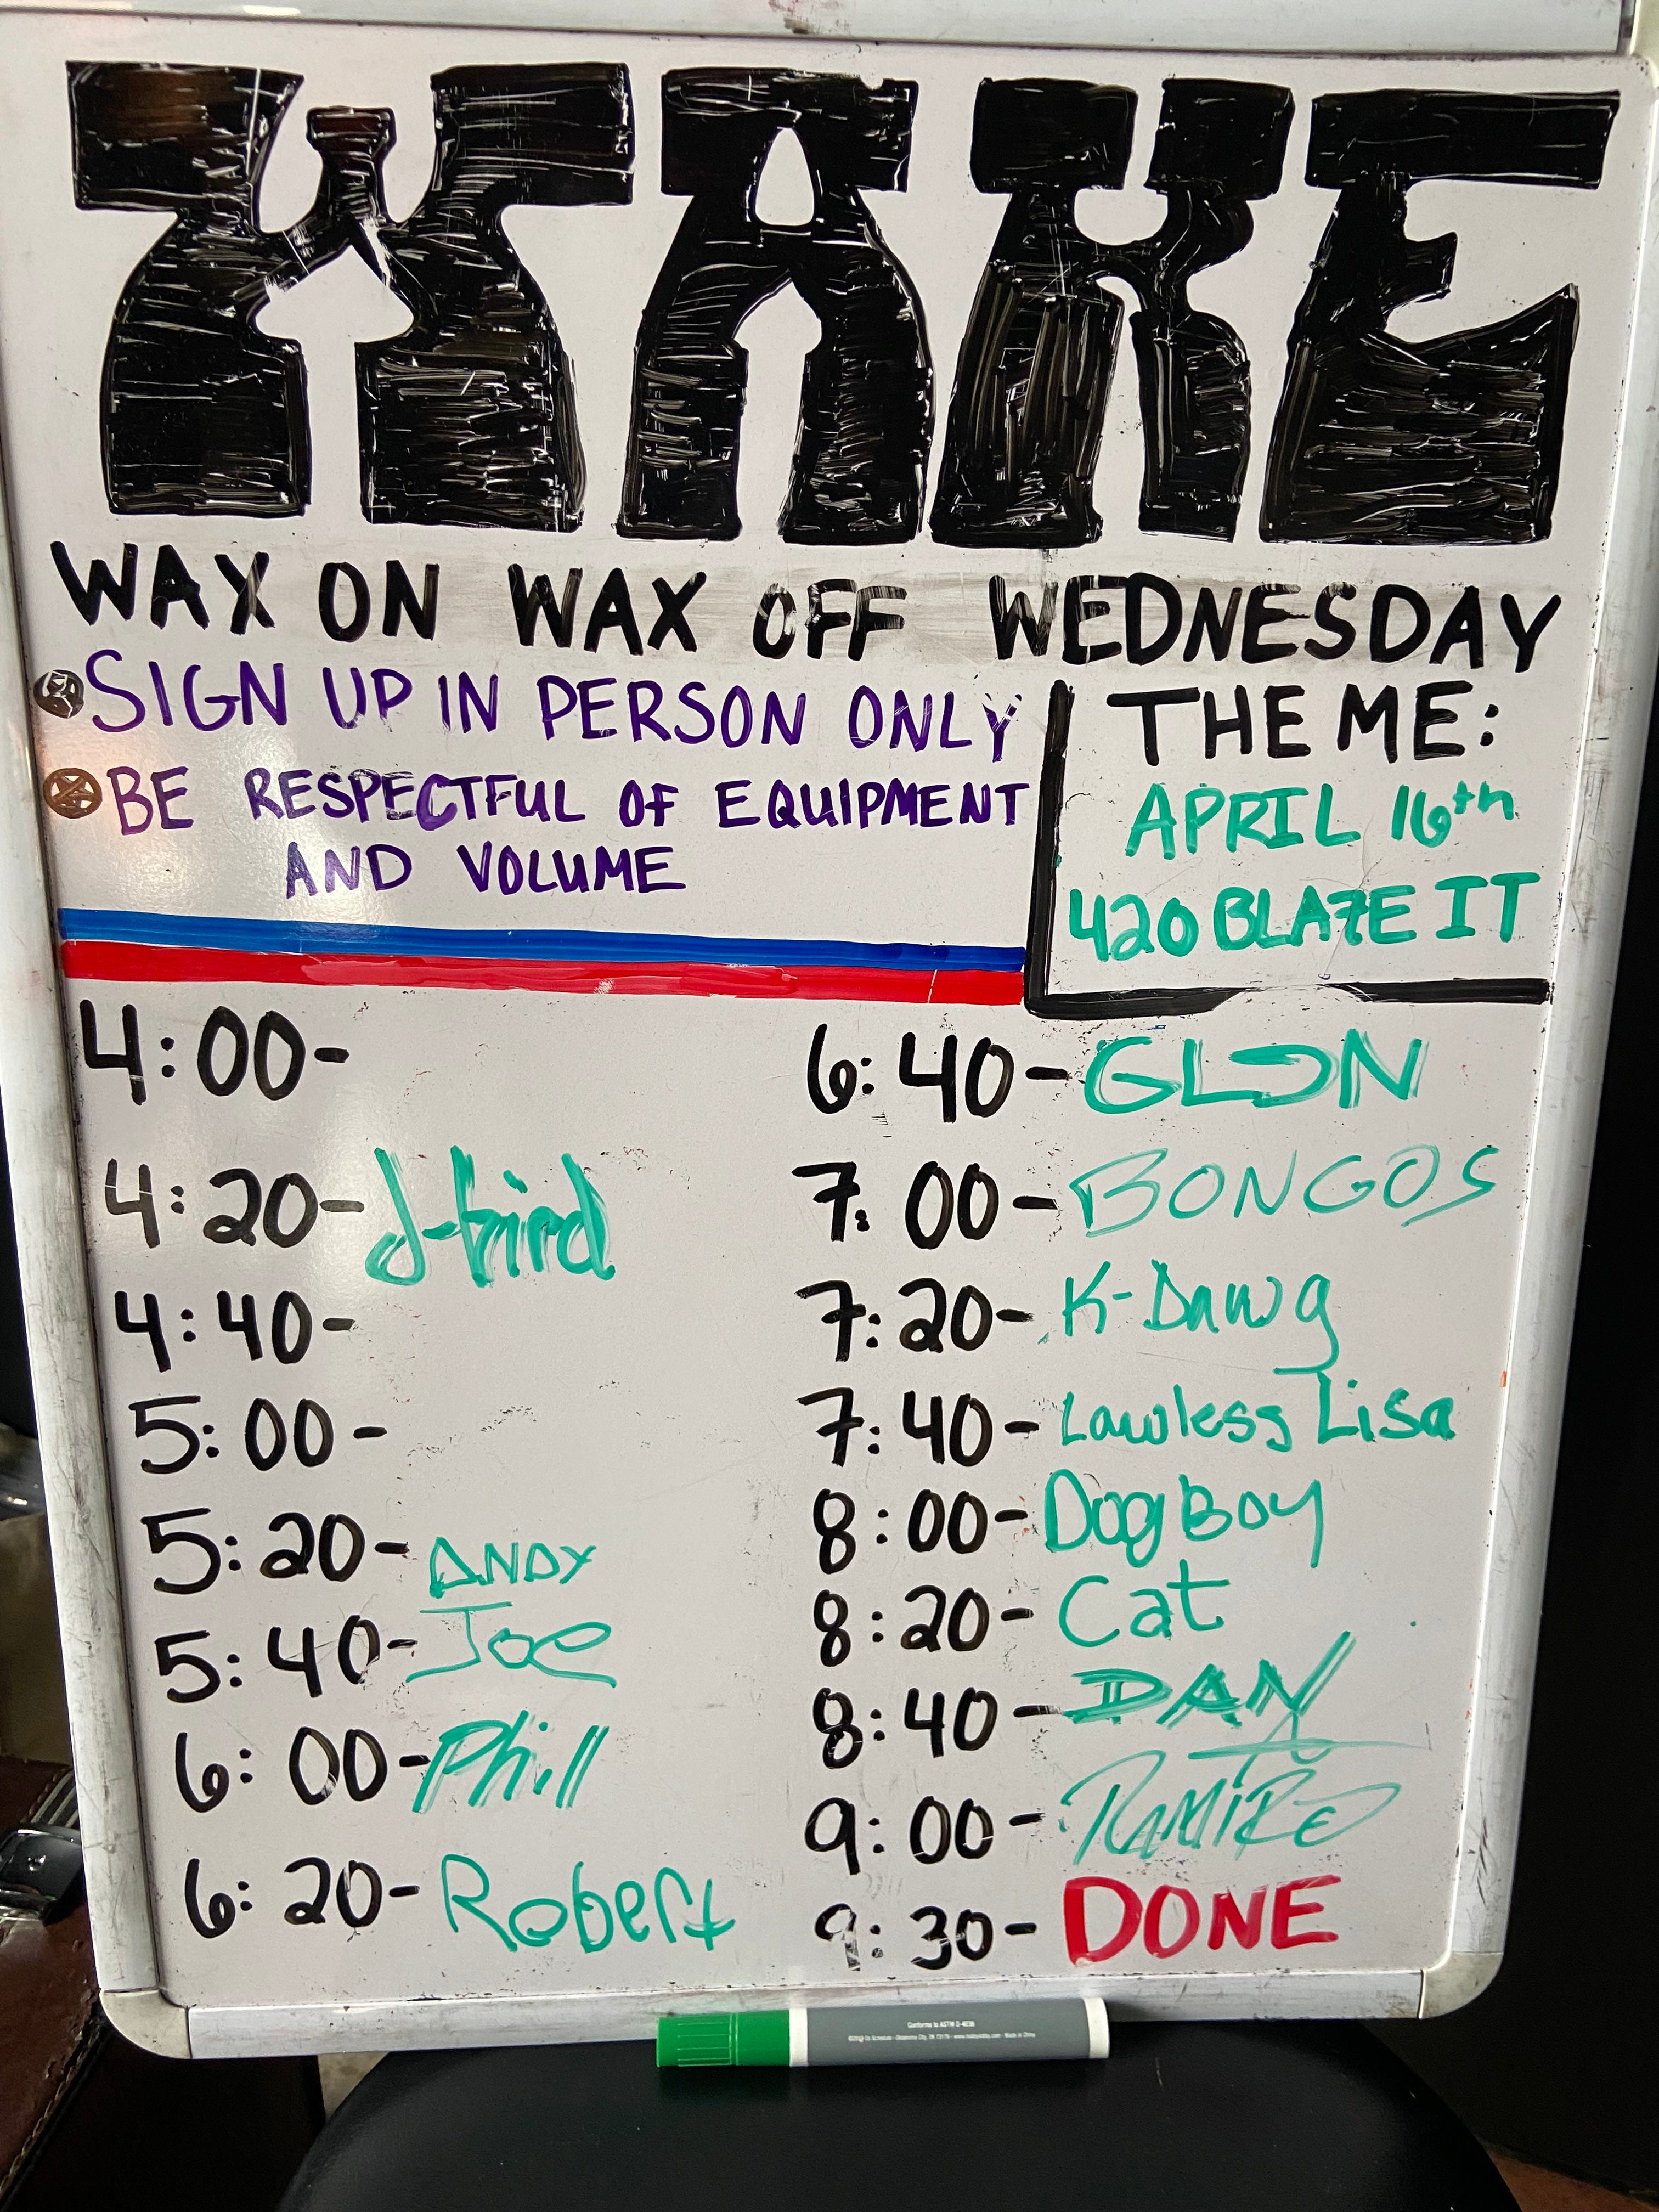 WAKE
WAX ON WAX OFF WEDNESDAY
SIGN UP IN PERSON ONLY
BE RESPECTFUL OF EQUIPMENT
AND VOLUME
THEME:
APRIL 16th
420 BLAZE IT
4:00-
4:20-
4:40-
5:00-
5:20- ANDY
5:40- Joe
6:00- Phill
6:20- Robert
6:40- GLEN
7:00- BONGOS
7:20- K-Dawg
7:40- Lawless Lisa
8:00- DogBoy
8:20- Cat
8:40- DAN
9:00- RAMIRO
9:30- DONE
Conforms to ASTM D-4236